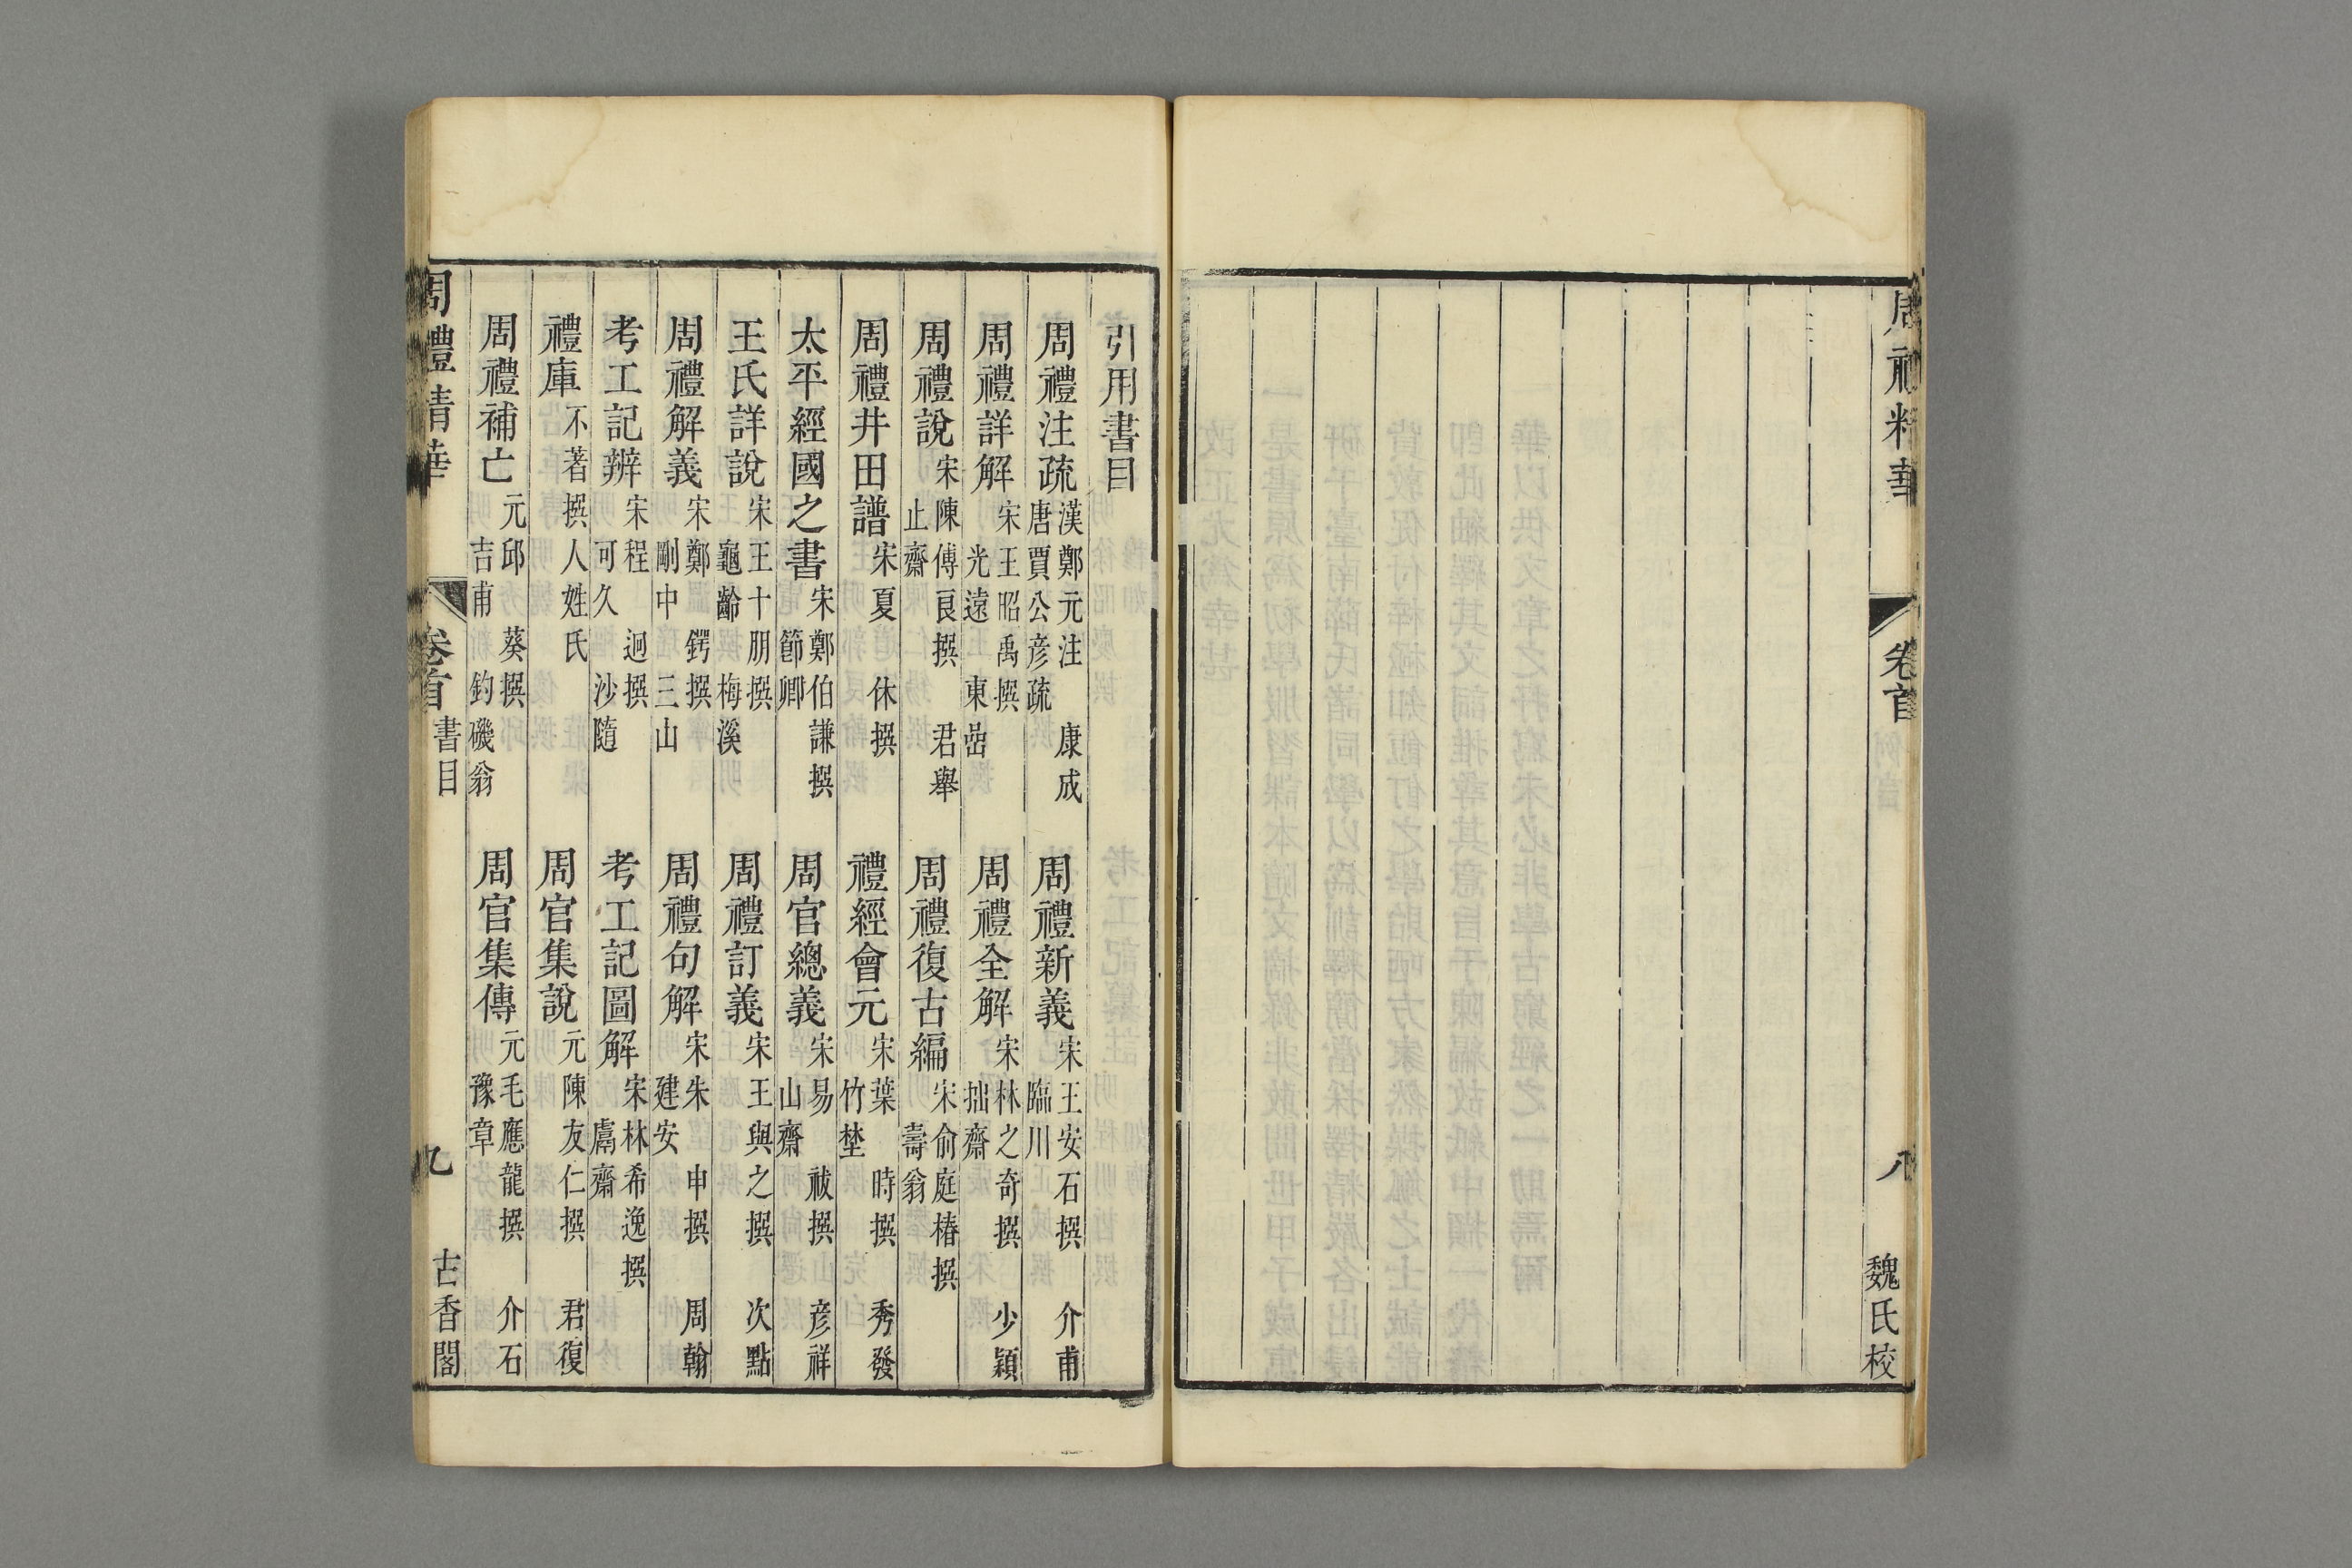 周禮精華
卷首
八
魏氏校
引用書目
周禮注疏 漢鄭元注 康成 唐賈公彦疏
周禮新義 宋王安石撰 介甫 臨川
周禮詳解 宋王昭禹撰 光遠 東嵒
周禮全解 宋林之奇撰 少穎 拙齋
周禮說 宋陳傅良撰 君舉 止齋
周禮復古編 宋俞庭椿撰 壽翁
周禮井田譜 宋夏休撰
禮經會元 宋葉時撰 秀發 竹埜
太平經國之書 宋鄭伯謙撰 節卿
周官總義 宋易祓撰 彦祥 山齋
王氏詳說 宋王十朋撰 龜齡 梅溪
周禮訂義 宋王與之撰 次點
周禮解義 宋鄭鍔撰 剛中 三山
周禮句解 宋朱申撰 周翰 建安
考工記辨 宋程迥撰 可久 沙隨
考工記圖解 宋林希逸撰 鬳齋
禮庫 不著撰人姓氏
周官集說 元陳友仁撰 君復
周禮補亡 元邱葵撰 吉甫 釣磯翁
周官集傳 元毛應龍撰 介石 豫章
周禮精華
卷首
書目
九
古香閣